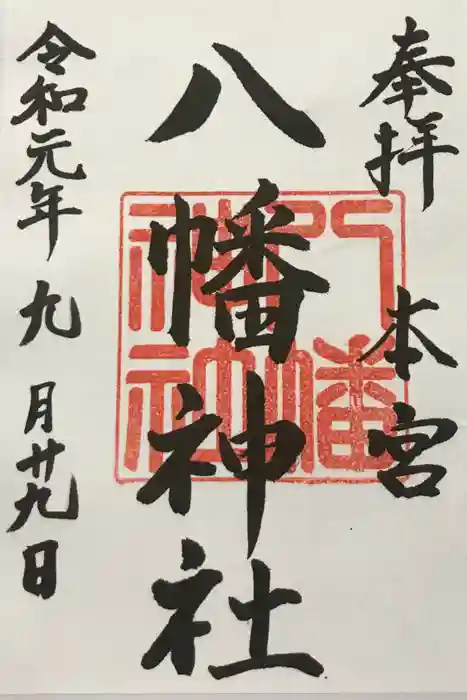 奉拝
本宮
八幡神社
令和元年九月廿九日
八幡
神社